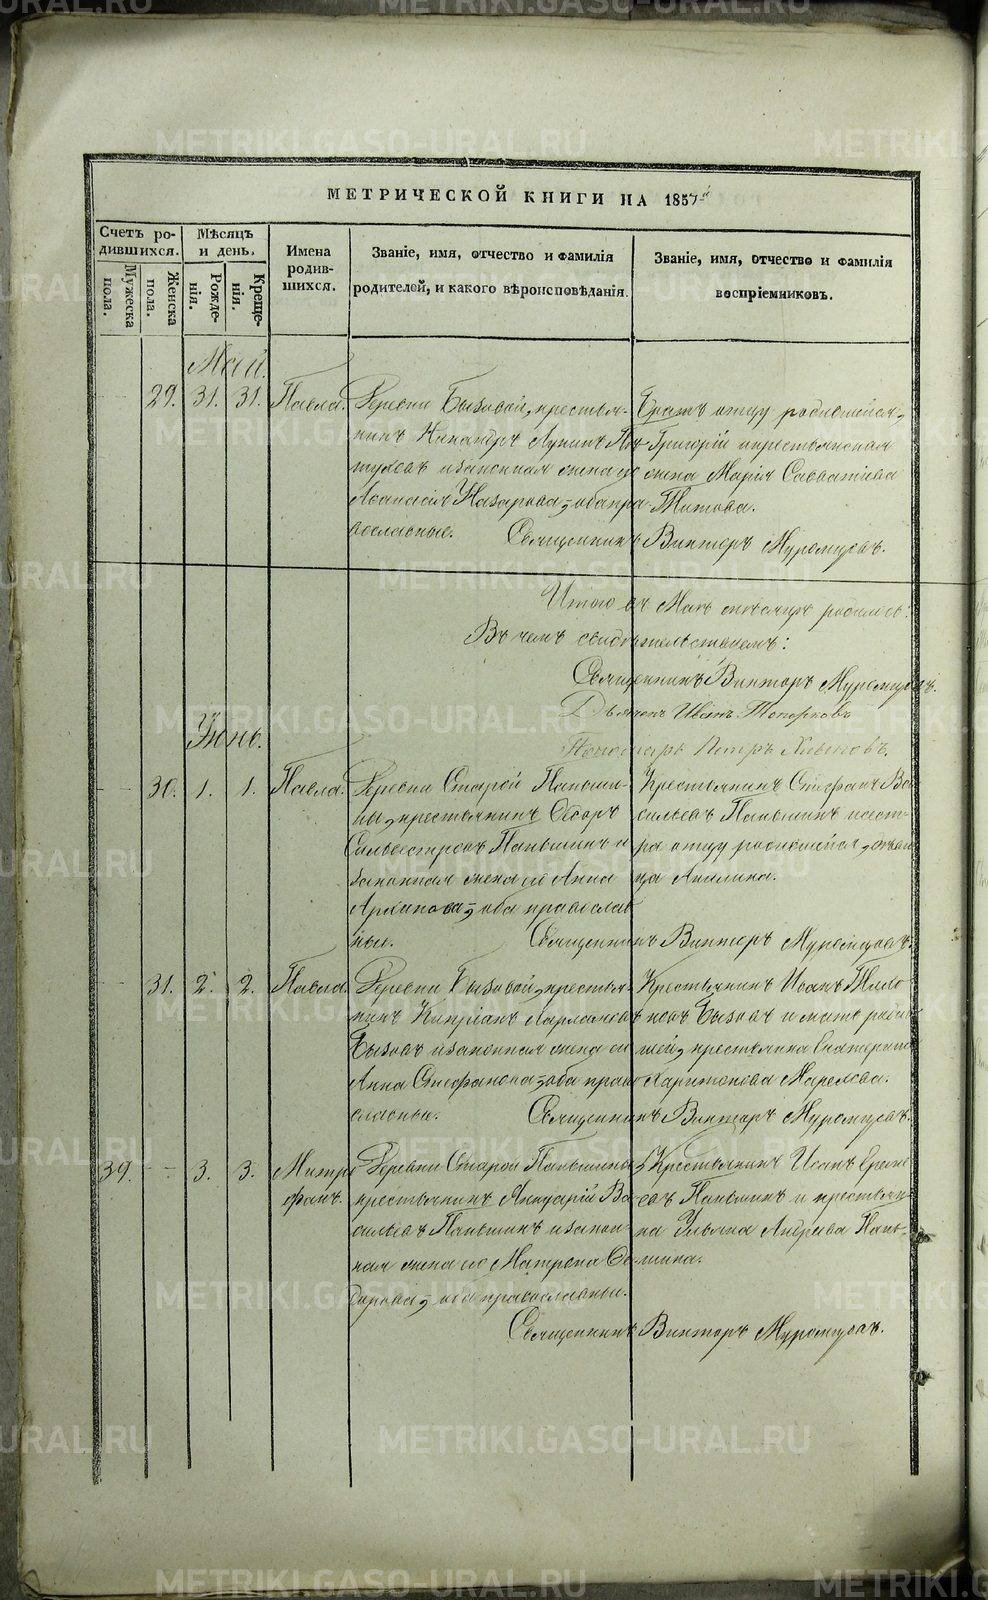 МЕТРИЧЕСКОЙ КНИГИ НА 1857й
Счетъ ро-
дившихся.
Мужеска
пола.
Женска
пола.
Мѣсяцъ
и день.
Рожде-
нія.
Креще-
нія.
Имена
родив-
шихся.
Званіе, имя, отчество и фамилія
родителей, и какого вѣроисповѣданія.
Званіе, имя, отчество и фамилія
воспріемниковъ.
Май.
29. 31. 31. Павла.
Деревни Бызовой, крестья-
нинъ Никандръ Лупинъ
и законная жена его
Афанасія Назарова, оба пра
вославные.
Братъ отцу родившейся,
Григорій и крестьянская
жена Марія Савватіева
Титова.
Священникъ Викторъ Муромцовъ.
Итого въ Маѣ мѣсяцѣ родилось:
Въ чемъ свидѣтельствуемъ:
Священникъ Викторъ Муромцовъ.
Дьяконъ Иванъ Топорковъ
Пономарь Петръ
Іюнь.
30. 1. 1. Павла.
Деревни Старой Паньши-
ны, крестьянинъ Ѳедоръ
Сильвестровъ Паньшинъ и
законная жена его Анна
Архипова, оба православ
ные.
Крестьянинъ Стефанъ Ва
сильевъ Паньшинъ и сест-
ра отцу родившейся, дѣви
ца Акилина.
Священникъ Викторъ Муромцовъ.
31. 2. 2. Павла.
Деревни Бызовой, крестья-
нинъ Кипріанъ Харлампіевъ
Бызовъ и законная жена его
Анна Стефанова, оба право
славны.
Крестьянинъ Иванъ
Бызовъ и мать родив
шей, крестьянка Екатерина
Харитонова
Священникъ Викторъ Муромцовъ.
39. 3. 3. Митро
фанъ.
Деревни Старой Паньшины
крестьянинъ Аккуарій Ва
сильевъ Паньшинъ и закон-
ная жена его Матрена Ѳе
дорова, оба православны.
Крестьянинъ Исакъ Ереме
евъ Паньшинъ и крестьян
ка Ульяна Андреева Пань-
шина.
Священникъ Викторъ Муромцовъ.
METRIKI.GASO-URAL.RU